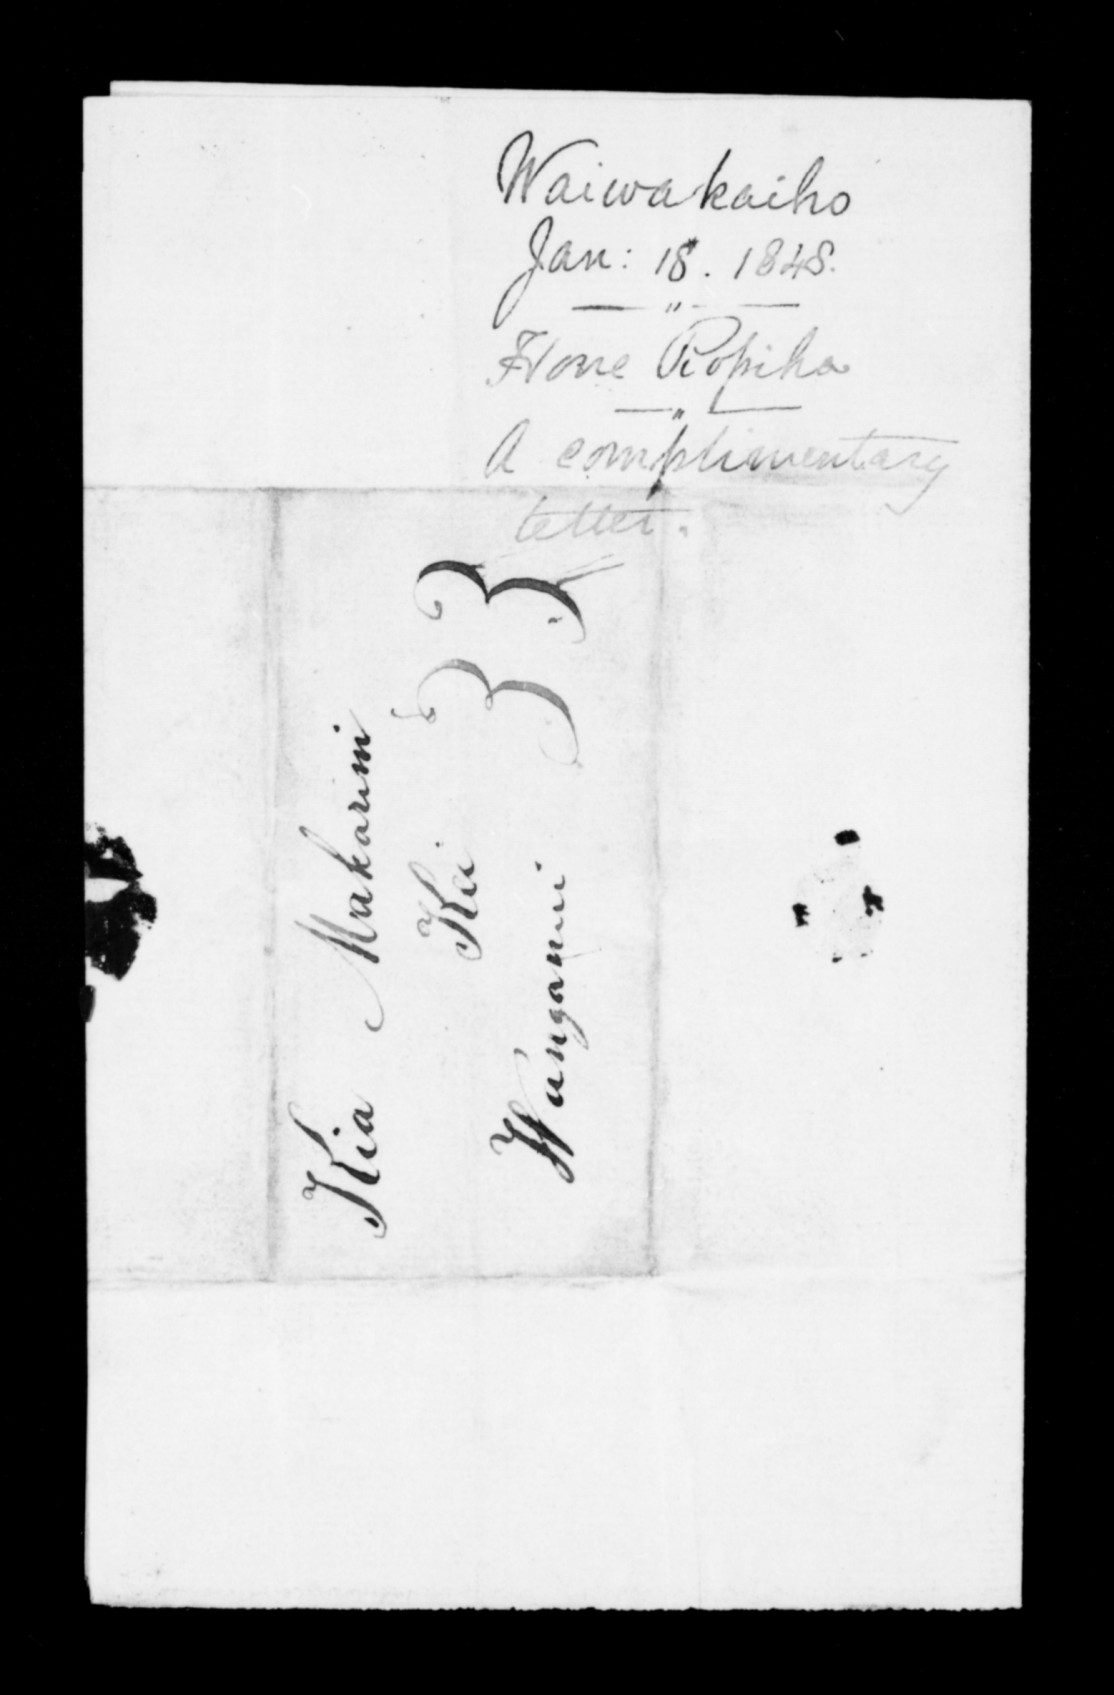 Waiwakaiho
Jan: 18. 1848.
Hone Ropiha
A complimentary
letter.
Kia Makarini
Kei
Wunganui